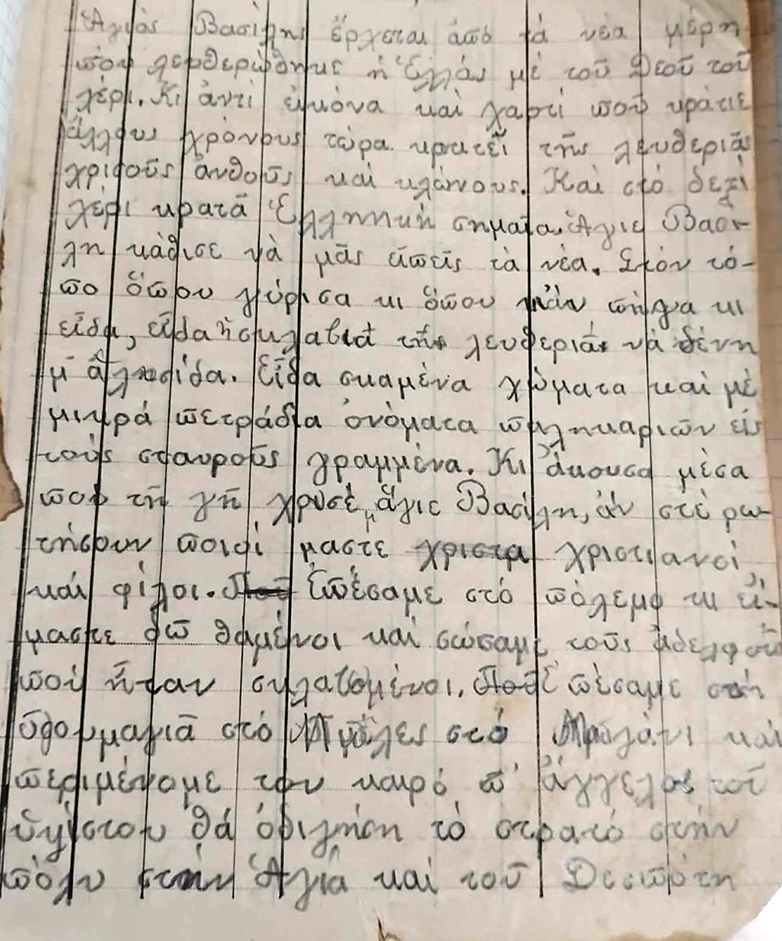 Ἁγιὸς Βασίλης ἔρχεται ἀπὸ τὰ νέα μέρη
ποὺ λευθερώθηκε ἡ Ἑλλάς μὲ τοῦ Θεοῦ τοῦ
χέρι. Κι ἀντί εἰκόνα καὶ χαρτί ποῦ κράτιε
ἄλλους χρόνους τώρα κρατεῖ τῆς λευθεριᾶς
χρισοῦς ἀνθοῦς καὶ κλώνους. Καὶ στὸ δεξὶ
χέρι κρατᾶ Ἑλληνικὴ σημαῖα. Ἅγιε Βασί-
λη κάθισε νὰ μᾶς εἰπεῖς τὰ νέα. Στὸν τό-
πο ὅπου γύρισα κι ὅπου πῆγα κι
εἶδα, εἶδα ἡ σκλαβιὰ τῆς λευθεριᾶς νὰ δένη
μ' ἁλυσίδα. Εἶδα σκαμένα χώματα καὶ μὲ
μικρά πετράδια ὀνόματα παληκαριῶν εἰς
τοὺς σταυροῦς γραμμένα. Κι ἄκουσα μέσα
ποὺ τῆ γῆ χρυσέ μ ἅγιε Βασίλη, ἀν στὲ ρω-
τήσουν ποιοί μαστε χριστα χριστιανοί
καὶ φίλοι. Ἐπέσαμε στὸ πόλεμο κι εἴ-
μαστε δῶ θαμένοι καὶ σώσαμε τοὺς ἀδελφοῦς
ποὺ ἦταν σκλαβομένοι. Ἐπέσαμε στὴ
στό Μπέλες στὸ καὶ
περιμένομε τον καιρό π' ἄγγελος τοῦ
ὑψίστου θὰ ὁδιγήση τὸ στρατό στὴν
πόλυ στὴν Ἁγιά καὶ τοῦ Δεσπότη